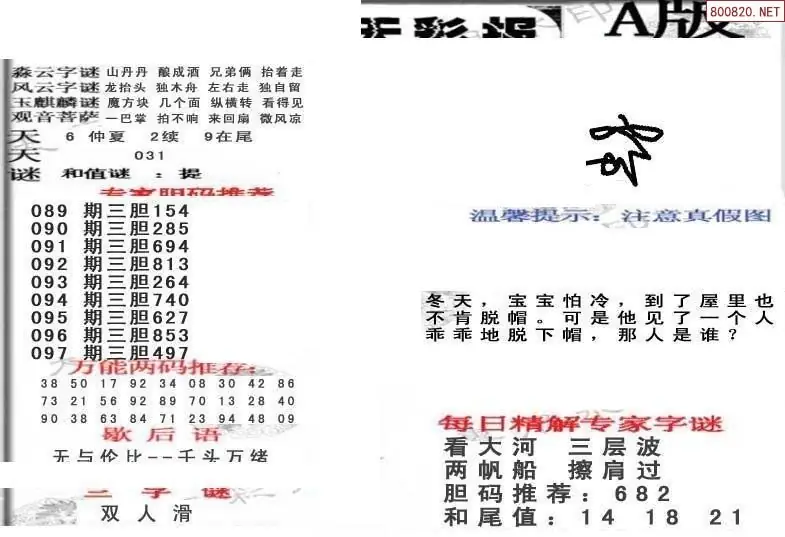 800820.NET
A版
森云字谜 山丹丹 酿成酒 兄弟俩 抬着走
风云字谜 龙抬头 独木舟 左右走 独自留
玉麒麟谜 魔方块 几个面 纵横转 看得见
观音菩萨 一巴掌 拍不响 来回扇 微风凉
天 6 仲夏 2续 9在尾
天 031
谜 和值谜 : 提
专家胆码推荐
089 期三胆154
090 期三胆285
091 期三胆694
092 期三胆813
093 期三胆264
094 期三胆740
095 期三胆627
096 期三胆853
097 期三胆497
万能两码推荐:
38 50 17 92 34 08 30 42 86
73 21 56 92 89 70 13 28 40
90 38 63 84 71 23 94 48 09
歇后语
无与伦比--千头万绪
三字谜
双人滑
温馨提示: 注意真假图
冬天，宝宝怕冷，到了屋里也
不肯脱帽。可是他见了一个人
乖乖地脱下帽，那人是谁？
每日精解专家字谜
看大河 三层波
两帆船 擦肩过
胆码推荐: 682
和尾值: 14 18 21